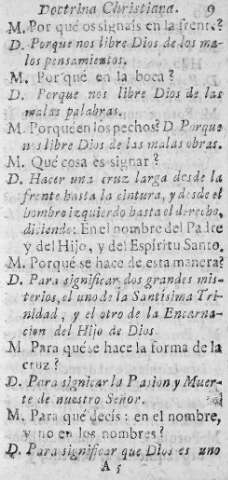 Doctrina Christiana. 9
M. Por qué os signais en la frent.?
D. Porque nos libre Dios de los ma-
los pensamientos.
M. Por qué en la boca?
D. Porque nos libre Dios de las
malas palabras.
M. Porqué en los pechos? D. Porque
nos libre Dios de las malas obras.
M. Qué cosa es signar?
D. Hacer una cruz larga desde la
frente hasta la cintura, y desde el
hombro izquierdo hasta el derecho,
diciendo: En el nombre del Padre
y del Hijo, y del Espíritu Santo.
M. Porqué se hace de esta manera?
D. Para significar dos grandes mis-
terios, el uno de la Santísima Tri-
nidad, y el otro de la Encarna-
cion del Hijo de Dios.
M. Para qué se hace la forma de la
cruz?
D. Para signicar la Pasion y Muer-
te de nuestro Señor.
M. Para qué decís: en el nombre,
y no en los nombres?
D. Para significar que Dios es uno
A 5